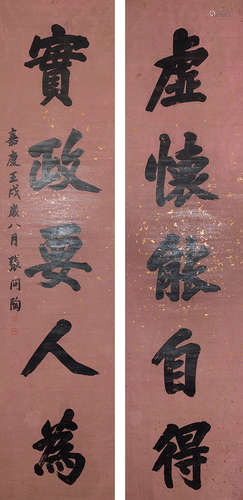 虛懷能自得
實政要人為
嘉慶壬戌歲八月張問陶